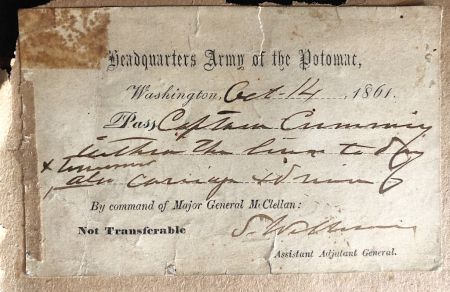 Headquarters Army of the Potomac,
Washington, Oct 14 1861.
Pass Captain Cumming
within the lines to day
&
also carriage & driver
By command of Major General McClellan:
Not Transferable S. Williams
Assistant Adjutant General.